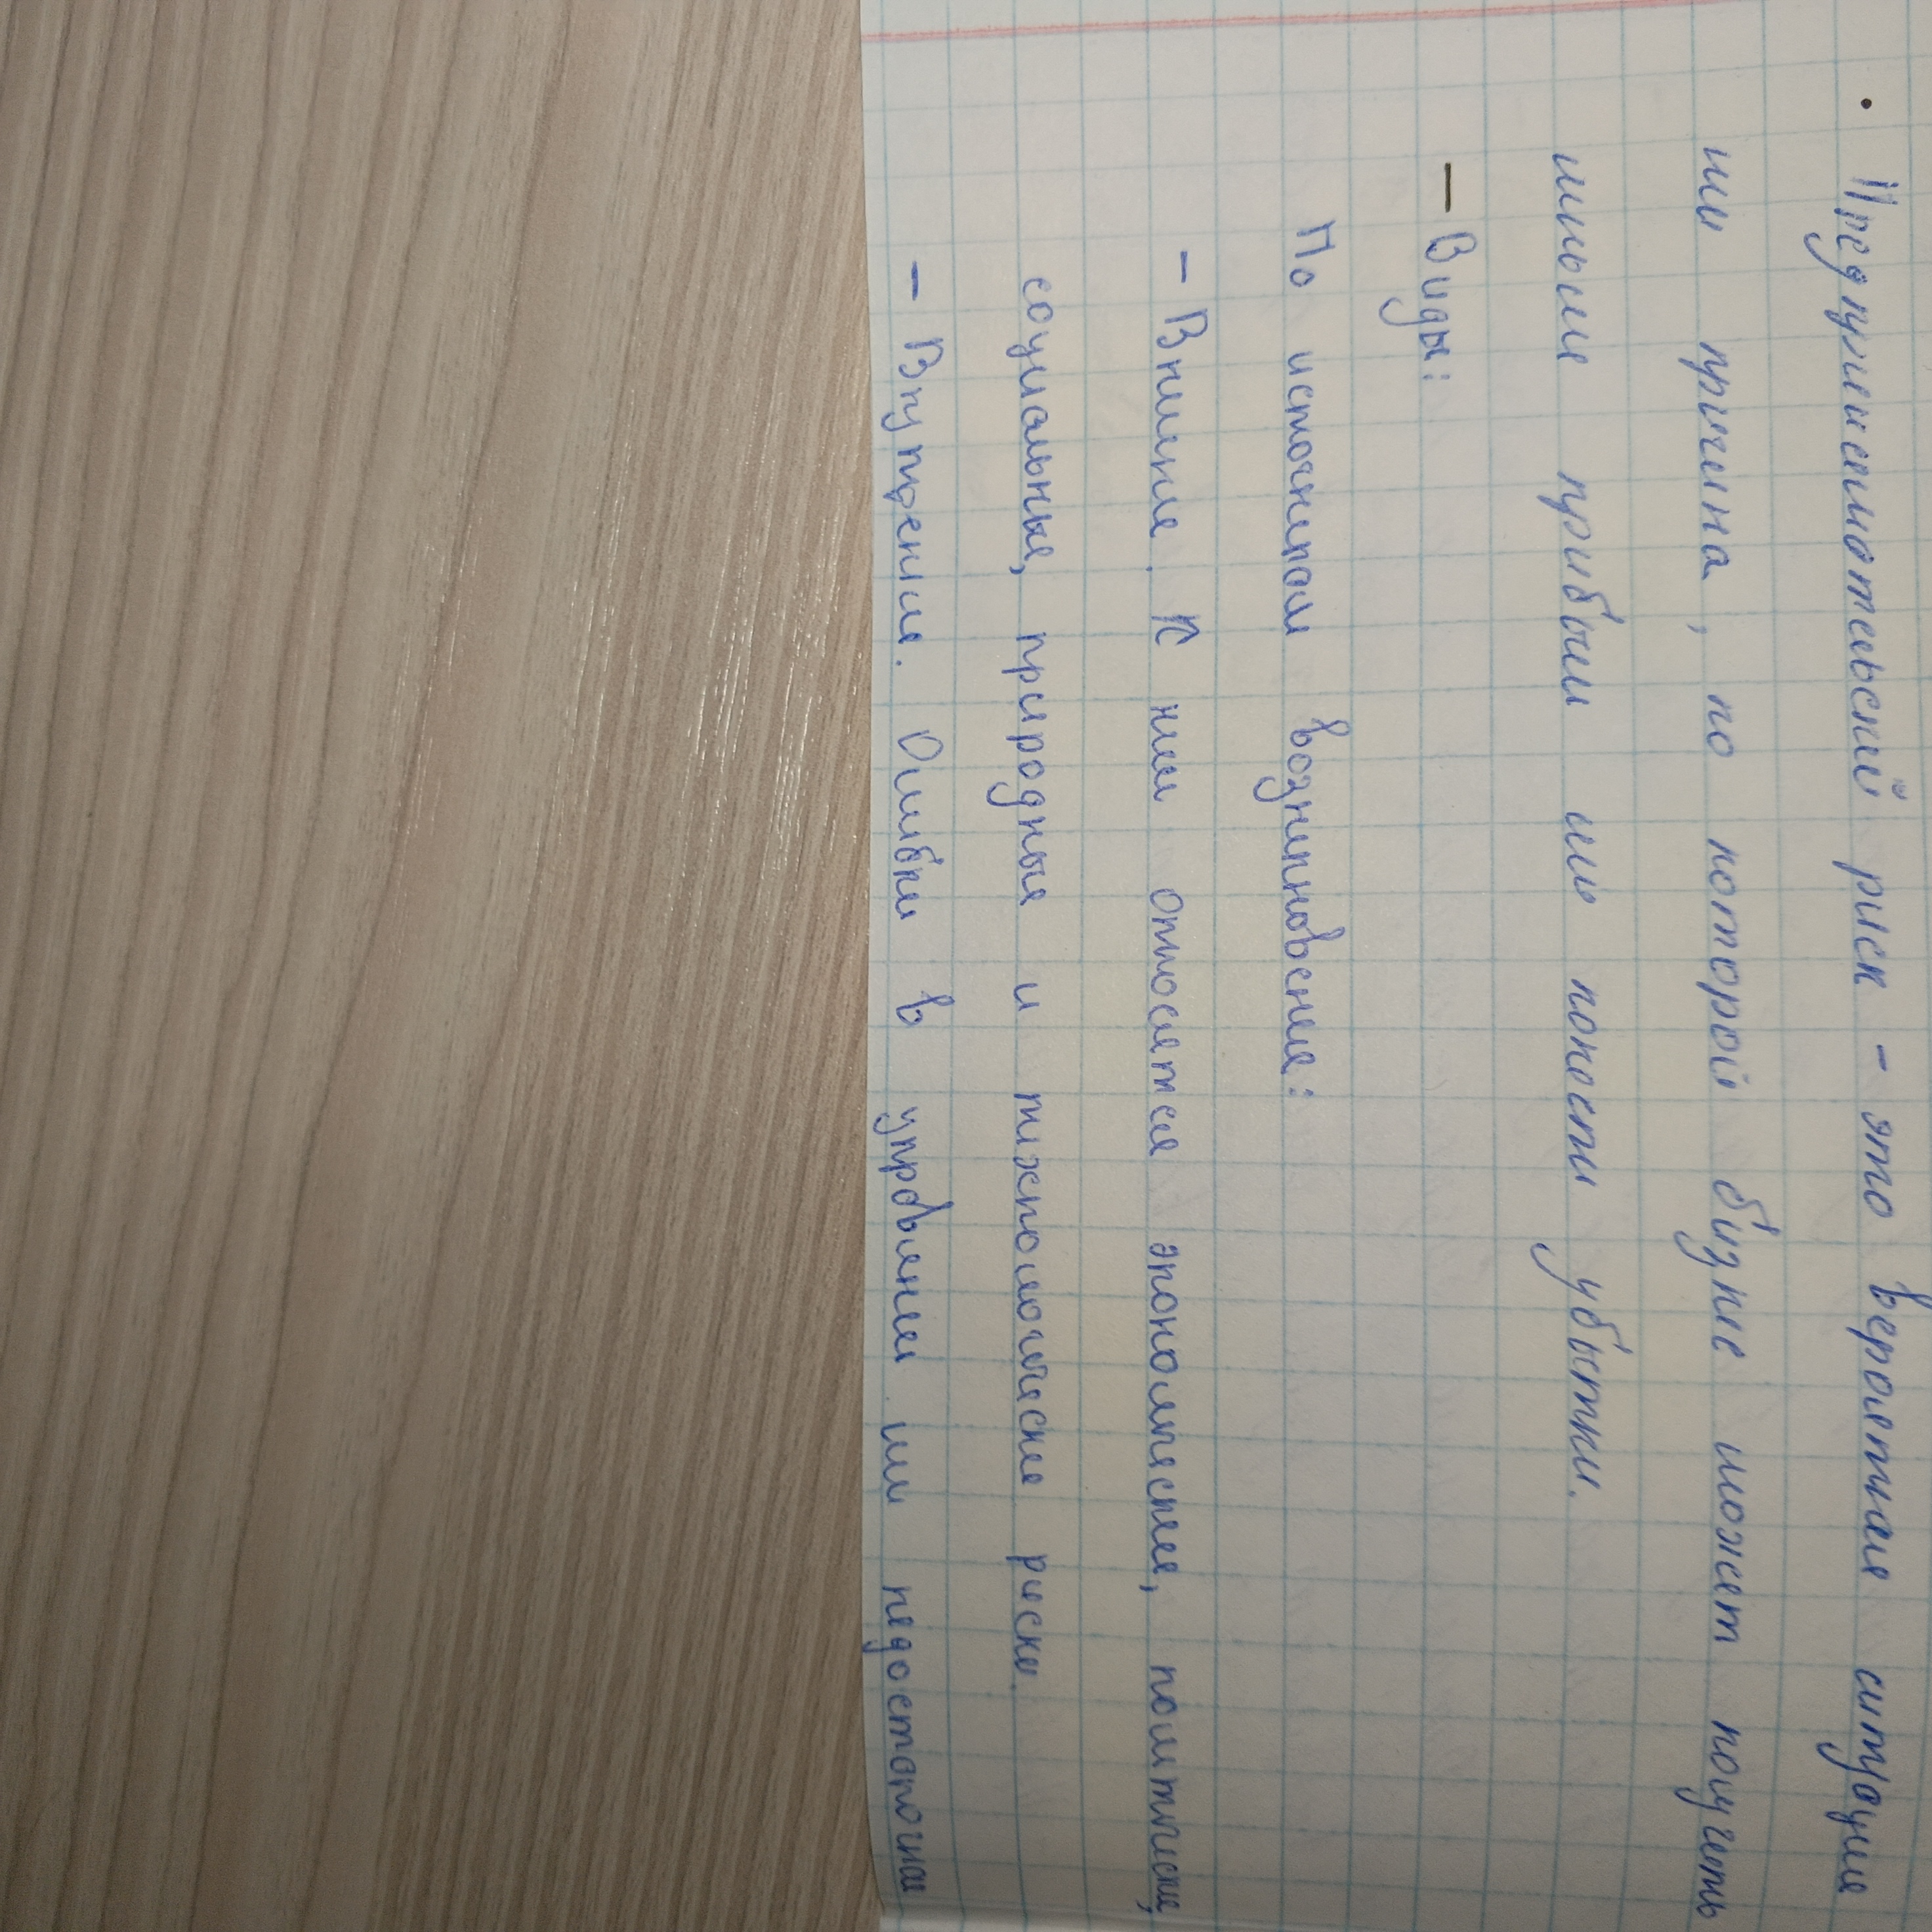 · Предпринимательский риск - это вероятная ситуация
или причина, по которой бизнес может получить
меньше прибыли или понести убытки.
— Виды:
По источникам возникновения:
- Внешние. К ним относятся экономические, политические,
социальные, природные и технологические риски.
- Внутренние. Ошибки в управлении или недостаточная